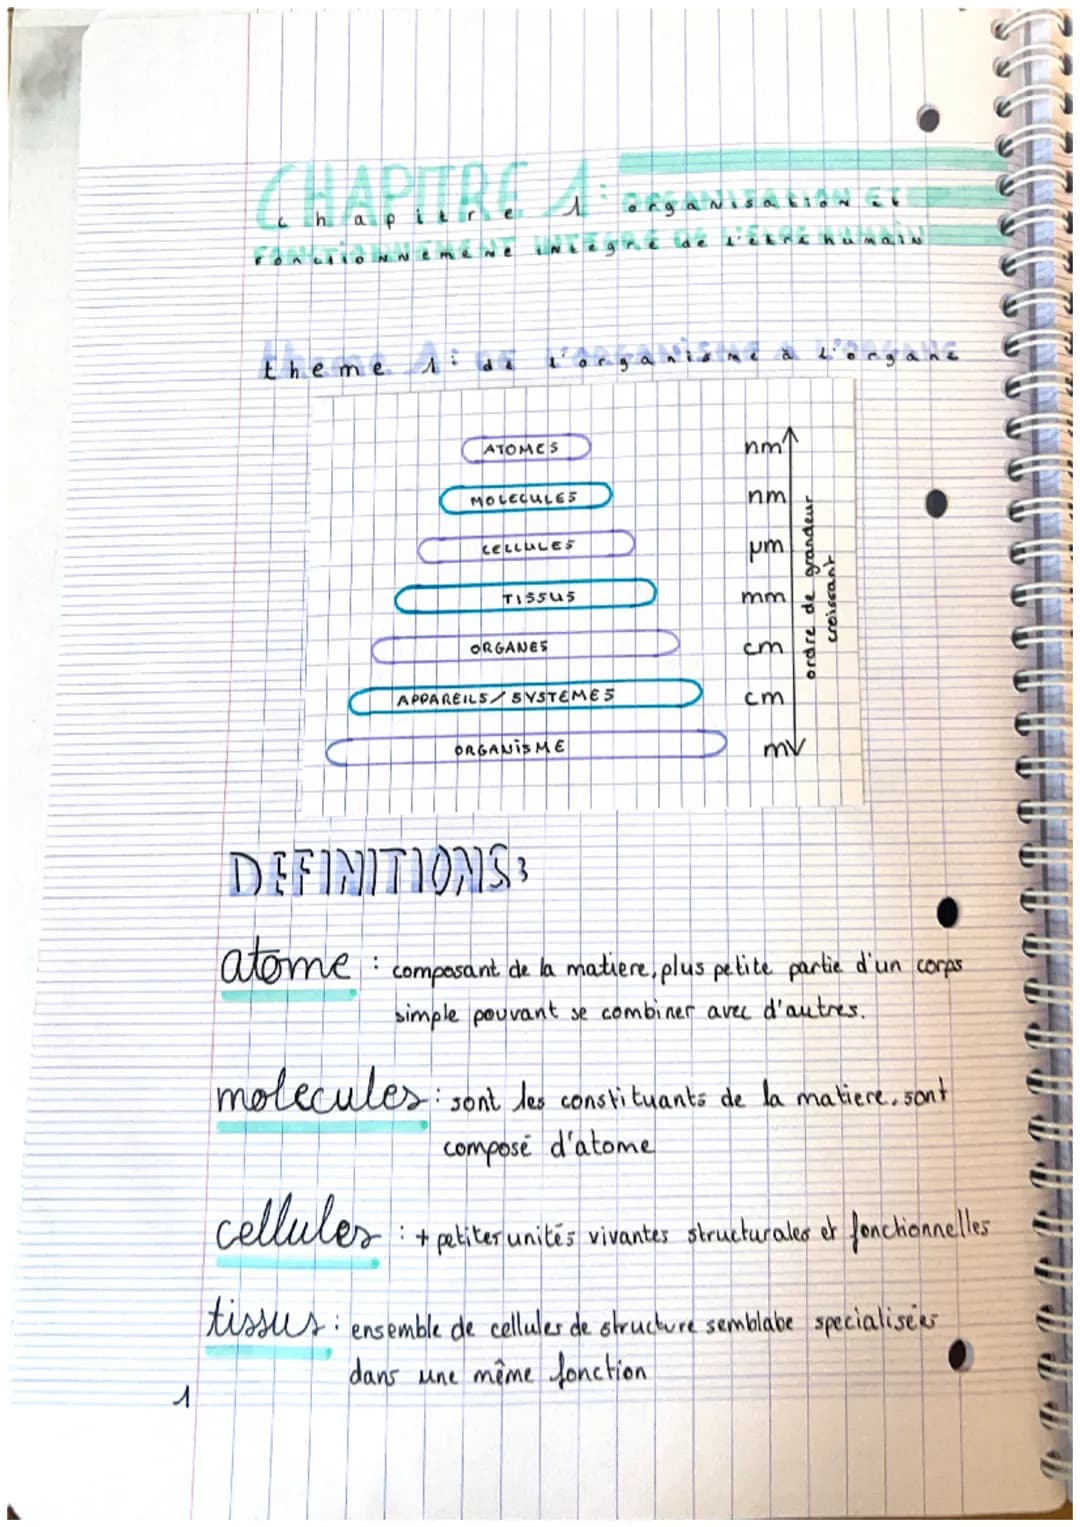 CHAPITRE 1: organisation et
fonctionnement intégré de l'être humain
theme 1: de l'organisme à l'organe
ATOMES nm
MOLECULES nm
CELLULES µm
TISSUS mm
ORGANES cm
APPAREILS/SYSTEMES cm
ORGANISME m
ordre de grandeur
croissant
DEFINITIONS:
atome : composant de la matiere, plus petite partie d'un corps
simple pouvant se combiner avec d'autres.
molecules : sont les constituants de la matiere, sont
composé d'atome
cellules : + petites unités vivantes structurales et fonctionnelles
tissus : ensemble de cellules de structure semblabe specialisées
dans une même fonction
1